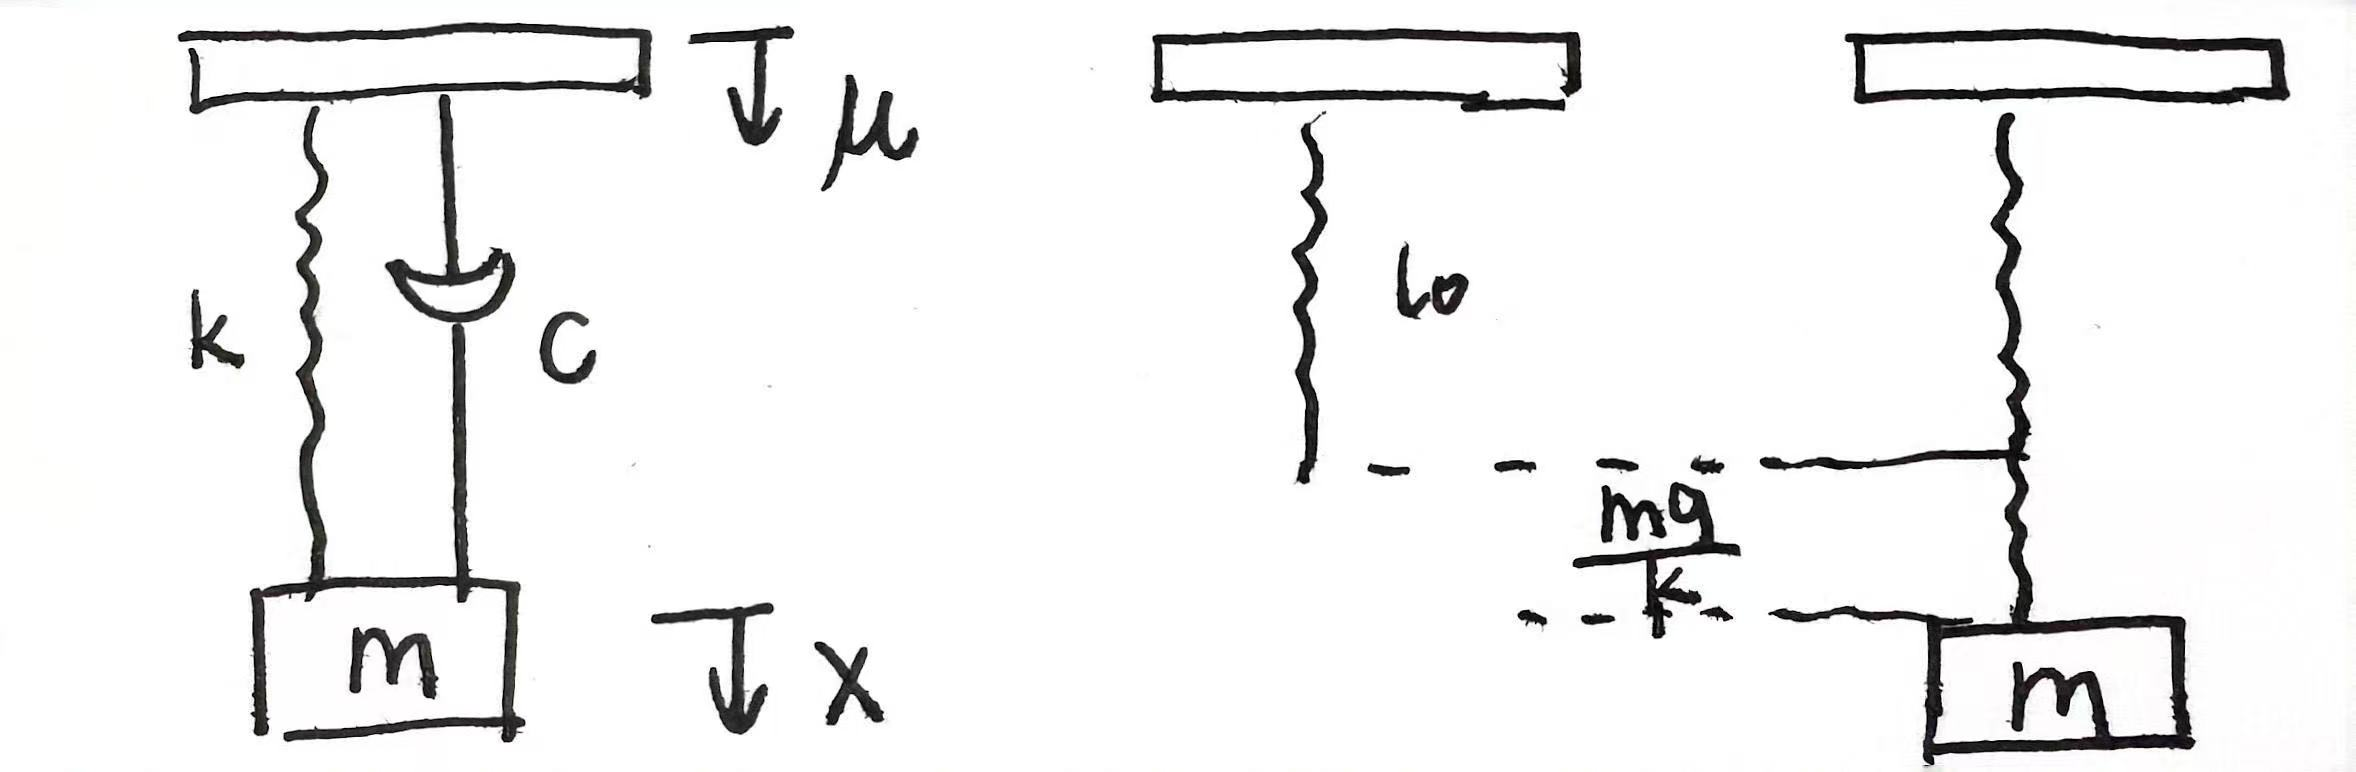 μ
k
C
m
x
lo
mg
k
m